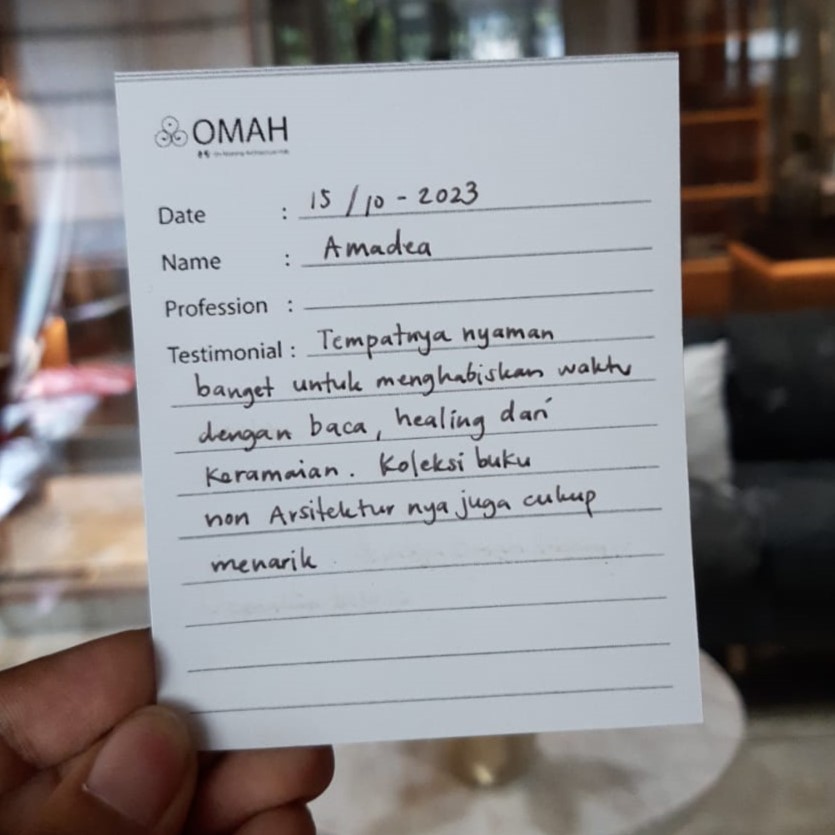 OMAH
Date : 15/10-2023
Name : Amadea
Profession :
Testimonial : Tempatnya nyaman
banget untuk menghabiskan waktu
dengan baca, healing dari
Keramaian. Koleksi buku
non Arsitektur nya juga cukup
menarik